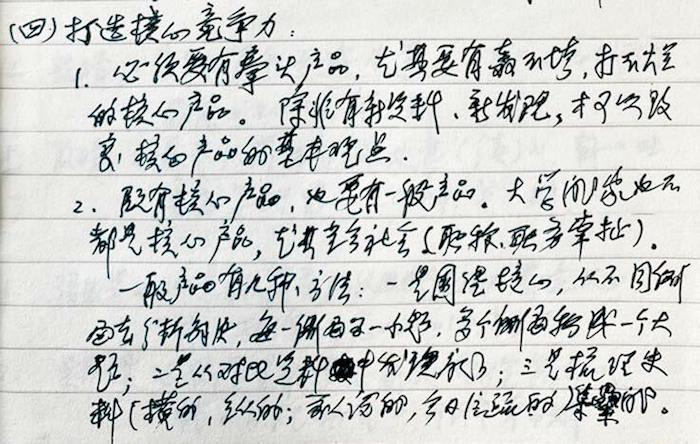 (四)打造核心竞争力:
1. 必须要有拳头产品,尤其要有轰不垮,打不烂
的核心产品。除非有新史料、新发现,才可以改
变核心产品的基本观点.
2. 既有核心产品,也要有一般产品。大学问家也不
都是核心产品,尤其是社会(职称、职务牵扯)。
一般产品有几种方法:一是围绕核心,从不同侧
面去分析解决,每一侧面又一小题,多个侧面拼成一个大
题;二是从对比史料中发现新的;三是梳理史
料(横的,纵的;前人说的,今日信疏的)